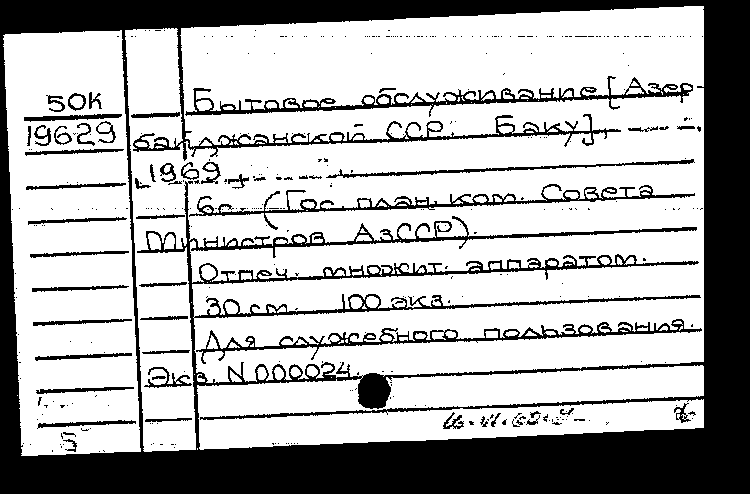 50К
Бытовое обслуживание [Азер-
19629
байджанской ССР. Баку],
[1969]
6с. (Гос. план. ком. Совета
Министров АзССР).
Отпеч. множит. аппаратом.
30 см. 100 экз.
Для служебного пользования.
Экз. N 000024.
5